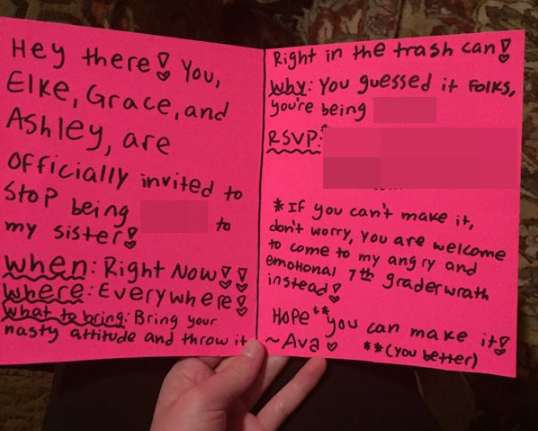 Hey there! You,
Elke, Grace, and
Ashley, are
officially invited to
stop being to
my sister!
When: Right Now!!
Where: Everywhere!
What to bring: Bring your
nasty attitude and throw it
Right in the trash can!
Why: You guessed it folks,
you're being
RSVP:
*If you can't make it,
don't worry, you are welcome
to come to my angry and
emotional 7th grader wrath
instead!
Hope** you can make it!
~Ava ♡ **(you better)